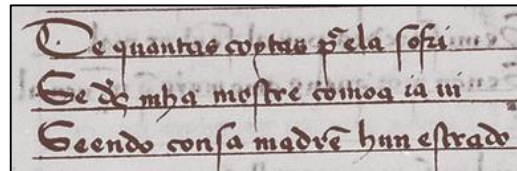 De quantas coytas p̃ ela sofri
Se d̃s mha mostre comoa ia ui
Seendo consa madrẽ hun estrado